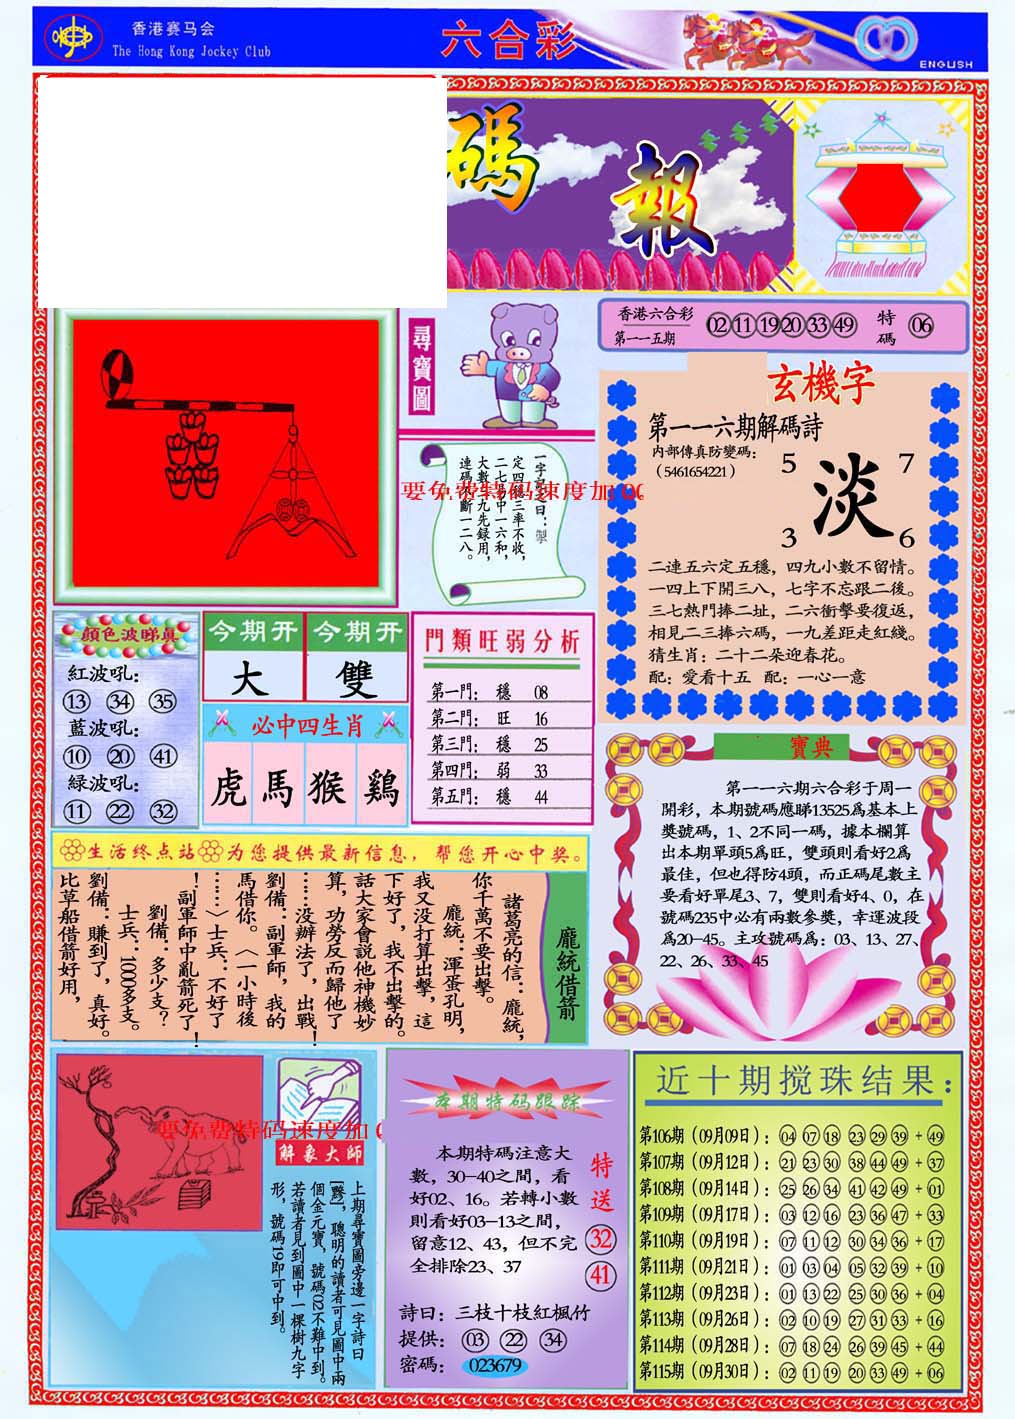 香港赛马会
The Hong Kong Jockey Club
六合彩
ENGLISH
碼報
尋寶圖
香港六合彩
第一一五期
02 11 19 20 33 49
特碼
06
玄機字
第一一六期解碼詩
内部傳真防變碼：
（5461654221）
5 7
淡
3 6
二連五六定五穩，四九小數不留情。
一四上下開三八，七字不忘跟二後。
三七熱門捧二扯，二六衝擊要復返，
相見二三捧六碼，一九差距走紅綫。
猜生肖：二十二朵迎春花。
配：愛看十五 配：一心一意
定四三率不收，
二七中一六和，
大數九先録用，
連碼斷一二八。
要免费特码速度加
顏色波睇真
紅波吼：
13 34 35
藍波吼：
10 20 41
緑波吼：
11 22 32
今期开 今期开
大 雙
必中四生肖
虎 馬 猴 鷄
門類旺弱分析
第一門： 穩 08
第二門： 旺 16
第三門： 穩 25
第四門： 弱 33
第五門： 穩 44
寶典
第一一六期六合彩于周一
開彩，本期號碼應睇13525爲基本上
獎號碼，1、2不同一碼，據本欄算
出本期單頭5爲旺，雙頭則看好2爲
最佳，但也得防4頭，而正碼尾數主
要看好單尾3、7，雙則看好4、0，在
號碼235中必有兩數參獎，幸運波段
爲20—45。主攻號碼爲：03、13、27、
22、26、33、45
生活终点站 为您提供最新信息，帮您开心中奖。
龐統借箭
諸葛亮的信：龐統，
你千萬不要出擊。
龐統：渾蛋孔明，
我又没打算出擊，這
下好了，我不出擊的。
話大家會説他神機妙
算，功勞反而歸他了
……没辦法了，出戰！
劉備：副軍師，我的
馬借你。〈一小時後
……〉士兵：不好了
！副軍師中亂箭死了！
劉備：多少支？
士兵：1000多支。
劉備：賺到了，真好。
比草船借箭好用，
要免费特码速度加
解象大師
上期尋寶圖旁邊一字詩曰
，聰明的讀者可見圖中兩
個金元寶，號碼02不難中到。
若讀者見到圖中一棵樹九字
形，號碼19即可中到。
本期特码跟踪
本期特碼注意大
數，30—40之間，看
好02、16。若轉小數
則看好03—13之間，
留意12、43，但不完
全排除23、37
特送
32
41
詩曰：三枝十枝紅楓竹
提供： 03 22 34
密碼： 023679
近十期搅珠结果：
第106期（09月09日）：04 07 18 23 29 39 + 49
第107期（09月12日）：21 23 30 38 44 49 + 37
第108期（09月14日）：25 26 34 41 42 49 + 01
第109期（09月17日）：03 12 16 23 36 47 + 33
第110期（09月19日）：07 11 12 30 34 36 + 17
第111期（09月21日）：01 03 04 05 32 39 + 10
第112期（09月23日）：01 13 22 25 30 36 + 04
第113期（09月26日）：02 10 19 27 31 33 + 16
第114期（09月28日）：07 18 24 26 39 45 + 44
第115期（09月30日）：02 11 19 20 33 49 + 06